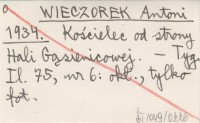 WIECZOREK Antoni
1934. Kościelec od strony
Hali Gąsienicowej. — Tyg.
Il. 75, nr 6: okł., tylko
fot.